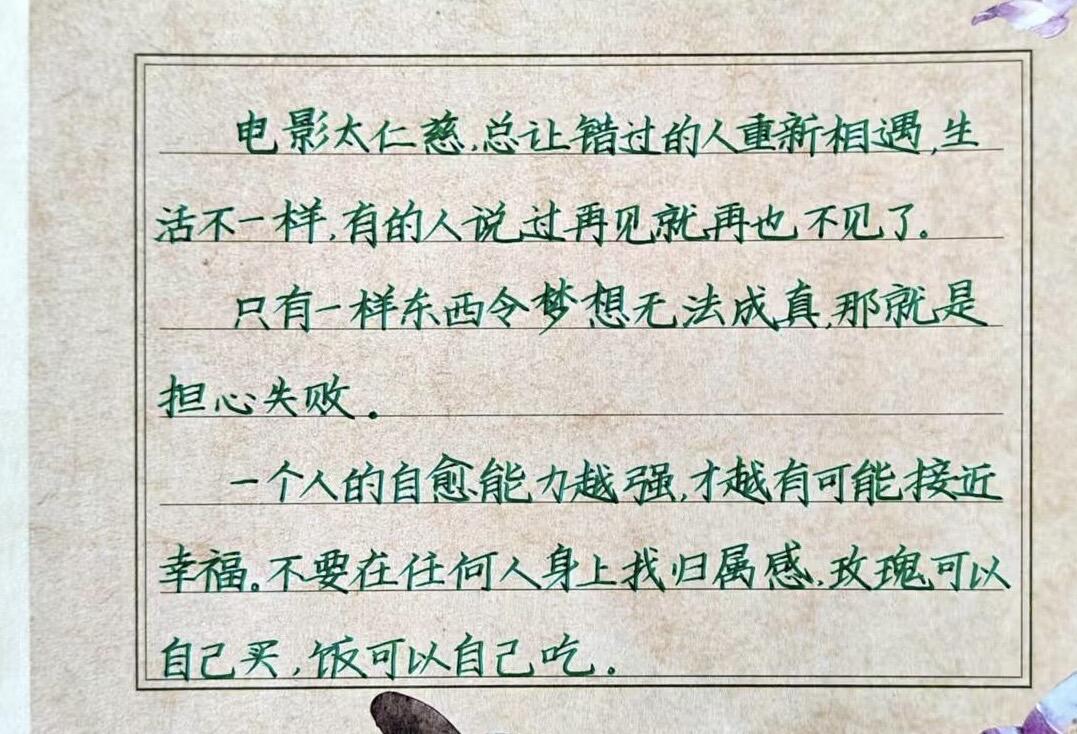 电影太仁慈,总让错过的人重新相遇,生
活不一样,有的人说过再见就再也不见了。
只有一样东西令梦想无法成真,那就是
担心失败。
一个人的自愈能力越强,才越有可能接近
幸福。不要在任何人身上找归属感,玫瑰可以
自己买,饭可以自己吃。